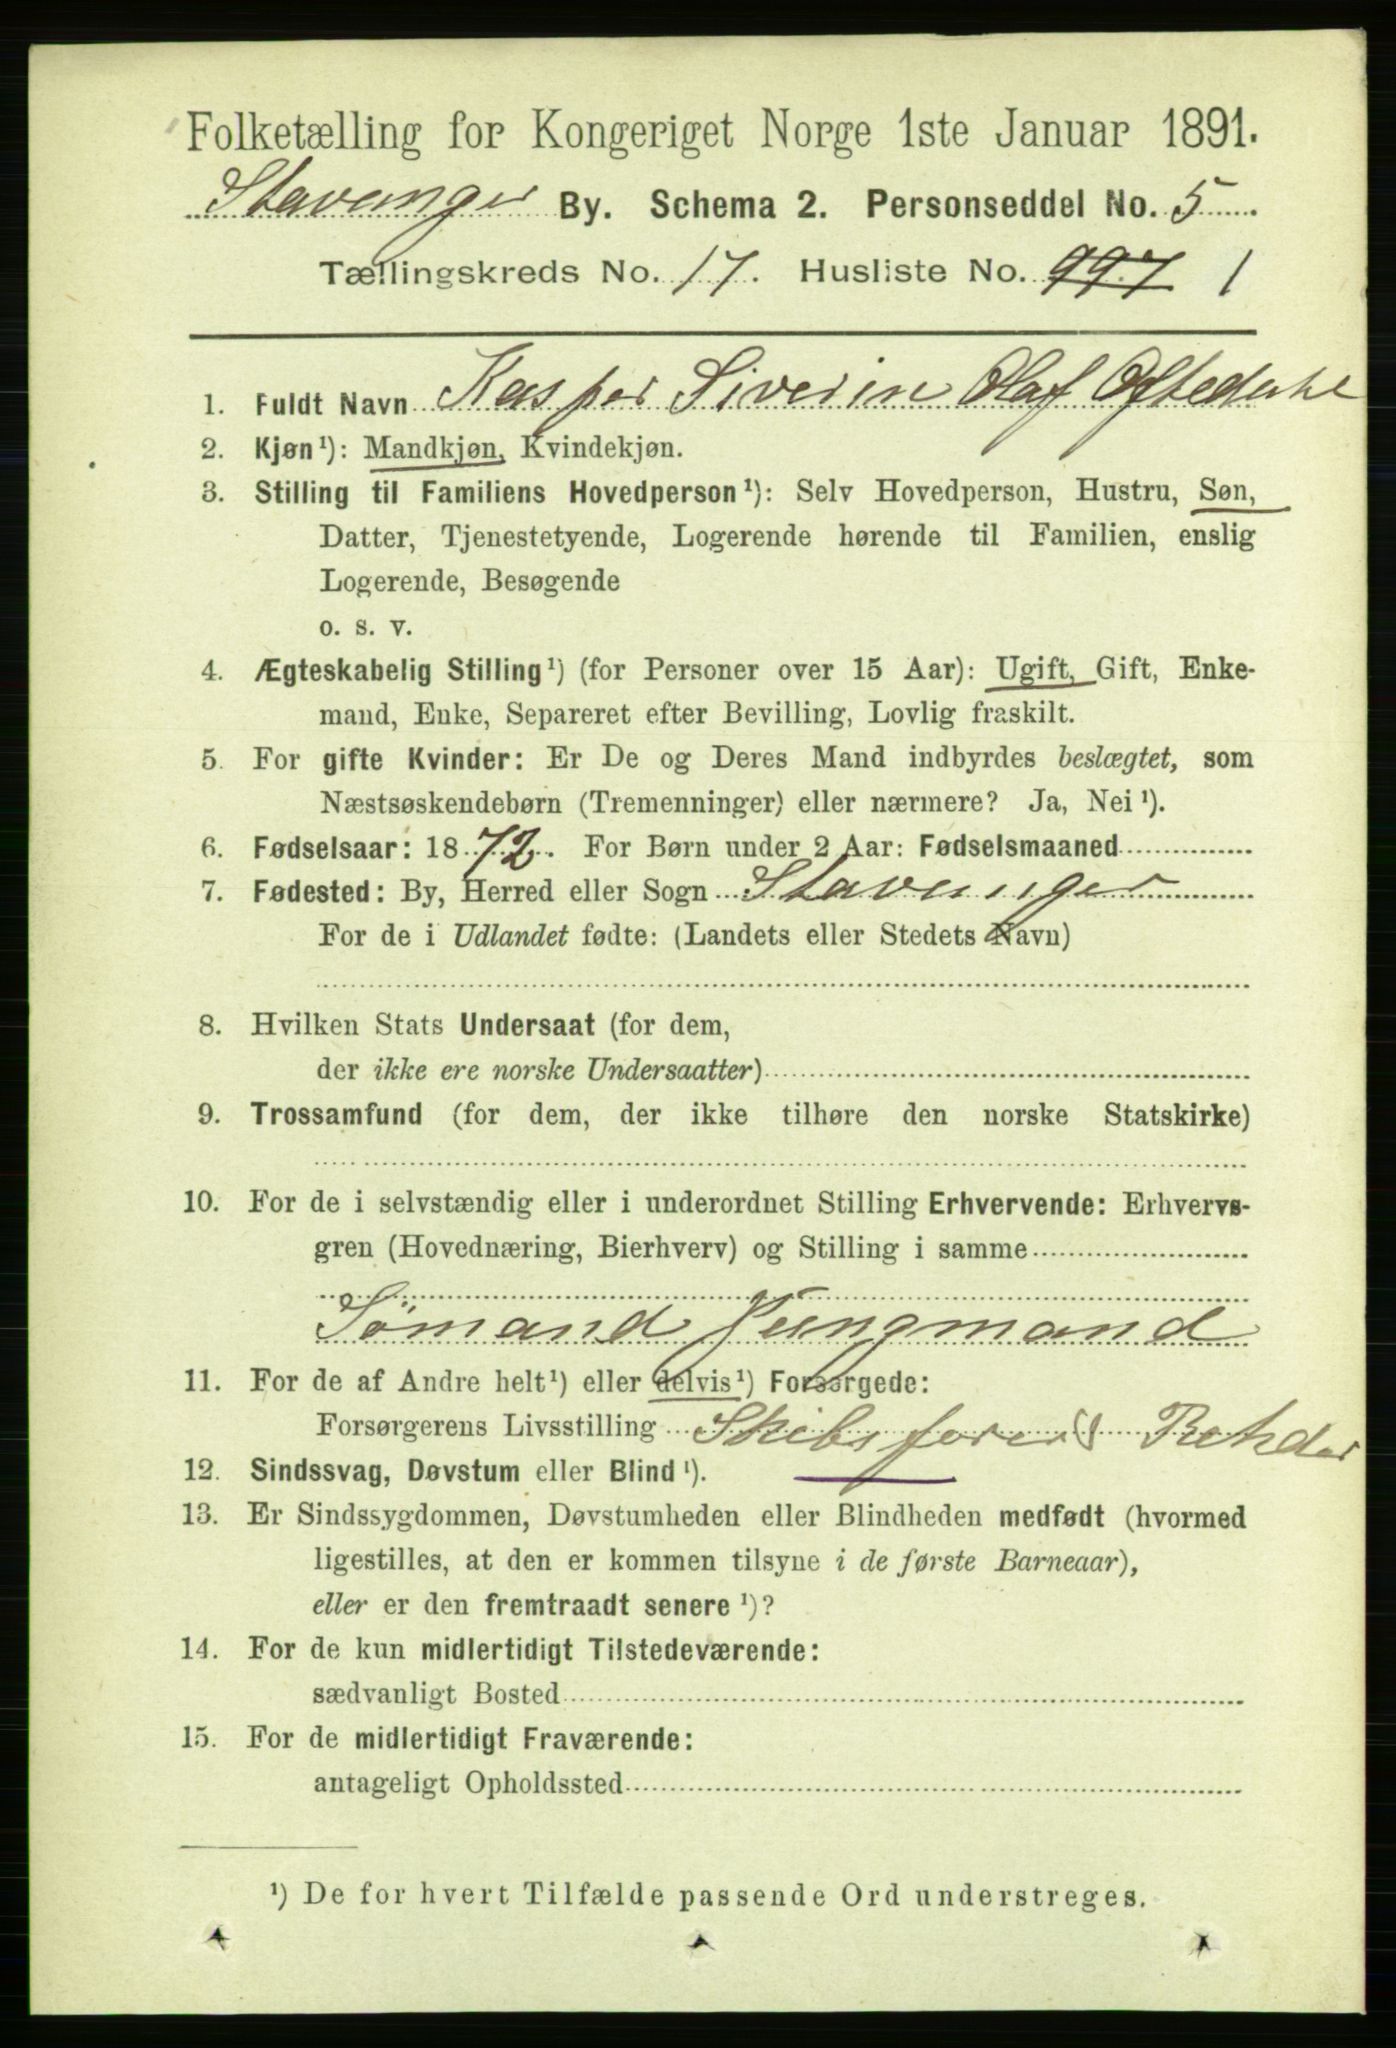 Folketælling for Kongeriget Norge 1ste Januar 1891.
Stavanger By. Schema 2. Personseddel No. 5
Tællingskreds No. 17. Husliste No. 997 1
1. Fuldt Navn Kasper Siverin Olaf Oftedahl
2. Kjøn¹): Mandkjøn, Kvindekjøn.
3. Stilling til Familiens Hovedperson¹): Selv Hovedperson, Hustru, Søn,
Datter, Tjenestetyende, Logerende hørende til Familien, enslig
Logerende, Besøgende
o. s. v.
4. Ægteskabelig Stilling¹) (for Personer over 15 Aar): Ugift, Gift, Enke-
mand, Enke, Separeret efter Bevilling, Lovlig fraskilt.
5. For gifte Kvinder: Er De og Deres Mand indbyrdes beslægtet, som
Næstsøskendebørn (Tremenninger) eller nærmere? Ja, Nei¹).
6. Fødselsaar: 1872. For Børn under 2 Aar: Fødselsmaaned
7. Fødested: By, Herred eller Sogn Stavanger
For de i Udlandet fødte: (Landets eller Stedets Navn)
8. Hvilken Stats Undersaat (for dem,
der ikke ere norske Undersaatter)
9. Trossamfund (for dem, der ikke tilhøre den norske Statskirke)
10. For de i selvstændig eller i underordnet Stilling Erhvervende: Erhvervs-
gren (Hovednæring, Bierhverv) og Stilling i samme
Sømand Jungmand
11. For de af Andre helt¹) eller delvis¹) Forsørgede:
Forsørgerens Livsstilling Skibsfører
12. Sindssvag, Døvstum eller Blind¹).
13. Er Sindssygdommen, Døvstumheden eller Blindheden medfødt (hvormed
ligestilles, at den er kommen tilsyne i de første Barneaar),
eller er den fremtraadt senere¹)?
14. For de kun midlertidigt Tilstedeværende:
sædvanligt Bosted
15. For de midlertidigt Fraværende:
antageligt Opholdssted
¹) De for hvert Tilfælde passende Ord understreges.